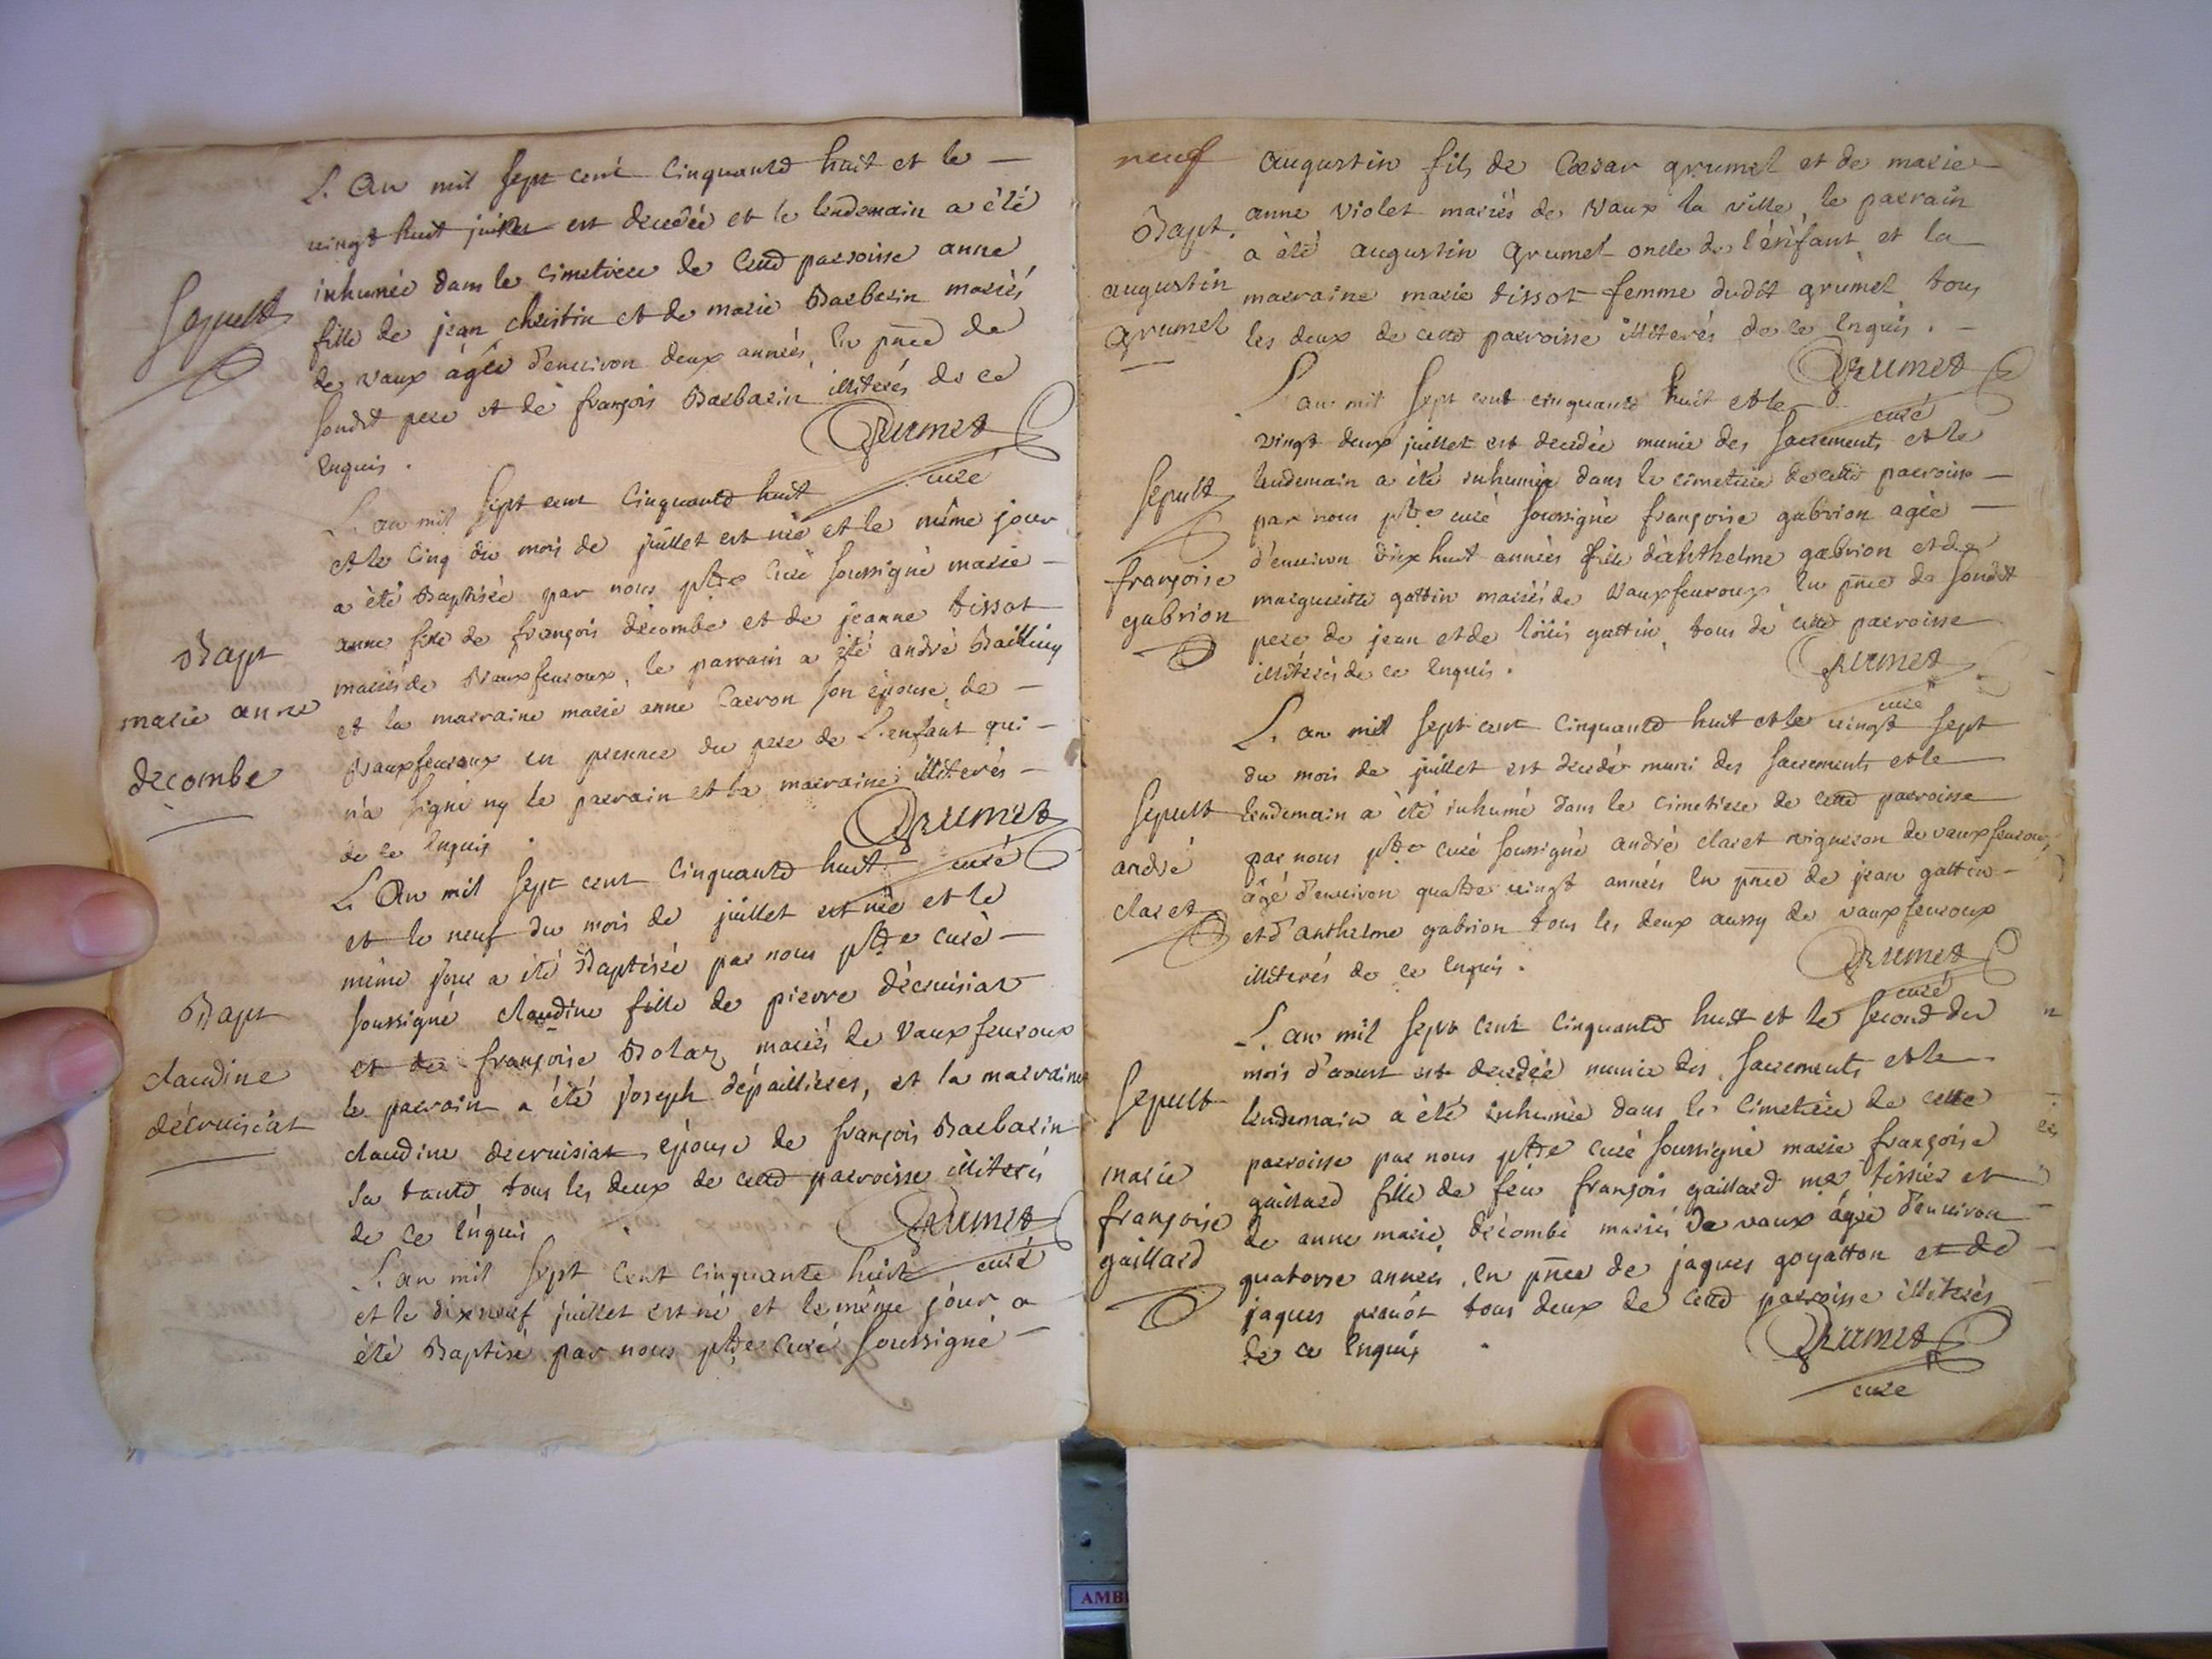 L'An mil sept cent cinquante huit et le
vingt huit juillet est decedée et le lendemain a été
inhumée dans le cimetiere de cette parroisse anne
fille de jean christin et de marie Barbarin mariés
de vaux agée d'environ deux années en pnce de
sondt pere et de françois Barbarin illiterés de ce
enquis.
Sepult
Grumet
curé
L'an mil sept cent cinquante huit
et le cinq du mois de juillet est née et le même jour
a été Baptisée par nous ptre curé soussigné marie
anne fille de françois décombe et de jeanne tissot
mariés de Vauxfevroux, le parrain a été andré
et la marraine marie anne Carron son épouse de
Vauxfevroux en presence du pere de L'enfant qui
n'a signé ny le parrain et la marraine illiterés
de ce enquis.
Bapt
marie anne
decombe
Grumet
curé
L'An mil sept cent cinquante huit
et le neuf du mois de juillet est née et le
même jour a été Baptisée par nous ptre curé
soussigné claudine fille de pierre décruisiat
et de françoise Bolaz mariés de Vauxfevroux
le parrain a été joseph dépaillieres, et la marraine
claudine decruisiat epouse de françois Barbarin
sa tante tous les deux de cette parroisse illiterés
de ce enquis.
Bapt
claudine
décruisiat
Grumet
curé
L'an mil sept cent cinquante huit
et le dixneuf juillet est né et le même jour a
été Baptisé par nous ptre curé soussigné
neuf
augustin fils de Cæsar grumet et de marie
anne violet mariés de Vaux la ville, le parrain
a été augustin grumet oncle de l'enfant et la
marraine marie tissot femme dudit grumet tous
les deux de cette parroisse illiterés de ce enquis.
Bapt.
augustin
grumet
Grumet
curé
L'an mil sept cent cinquante huit et le
vingt deux juillet est decedée munie des sacrements et le
lendemain a été inhumée dans le cimetiere de cette parroisse
par nous ptre curé soussigné françoise gabrion agée
d'environ dix huit années fille d'anthelme gabrion et de
marguerite gattin mariés de Vauxfevroux en pnce de sondit
pere de jean et de loüis gattin, tous de cette parroisse
illiterés de ce enquis.
Sepult
françoise
gabrion
Grumet
curé
L'an mil sept cent cinquante huit et le vingt sept
du mois de juillet est decedé muni des sacrements et le
lendemain a été inhumé dans le cimetiere de cette parroisse
par nous ptre curé soussigné andré claret vigneron de vauxfevroux
âgé d'environ quatre vingt années en pnce de jean gattin
et d'anthelme gabrion tous les deux aussy de vauxfevroux
illiterés de ce enquis.
Sepult
andré
claret
Grumet
curé
L'an mil sept cent cinquante huit et le second du
mois d'aoust est decedée munie des sacrements et le
lendemain a été inhumée dans le cimetiere de cette
parroisse par nous ptre curé soussigné marie françoise
gaillard fille de feu françois gaillard me tissier et
de anne marie décombe mariés de vaux agée d'environ
quatorse années, en pnce de jaques goyatton et de
jaques tous deux de cette parroisse illiterés
de ce enquis.
Sepult
marie
françoise
gaillard
Grumet
curé
AMB